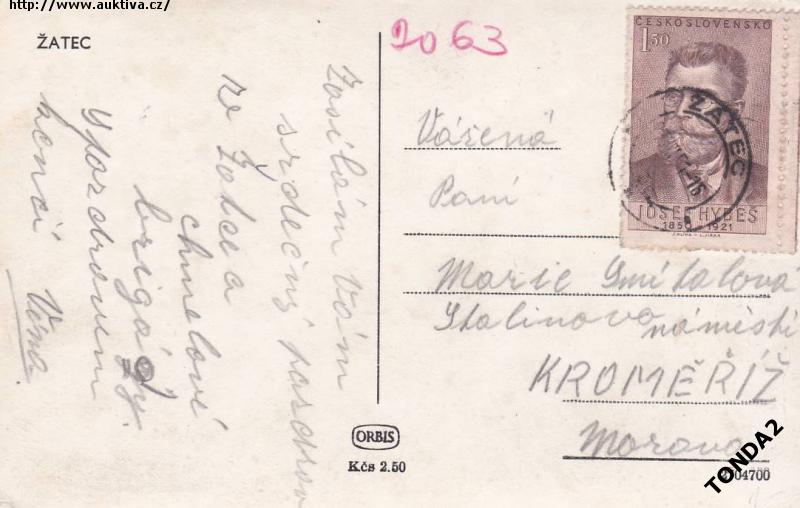 http://www.auktiva.cz/
ŽATEC
2063
ČESKOSLOVENSKO
1.50
ŽATEC
JOSEF HYBEŠ
1850 - 1921
Zasílám Vám
srdečný pozdrav
ze Žatce a
chmelové
brigády.
S pozdravem
končí Věra
Vážená
Paní
Marie Smítalová
Stalinovo náměstí
KROMĚŘÍŽ
Morava
ORBIS
Kčs 2.50
TONDA2